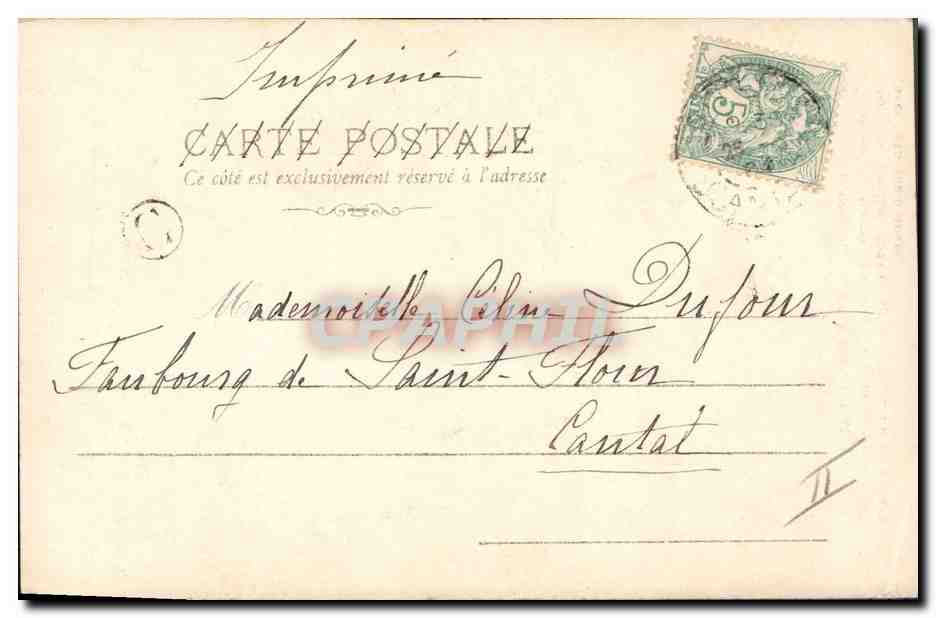 Imprimé
CARTE POSTALE
Ce côté est exclusivement réservé à l'adresse
5
Mademoiselle Céline Dufour
Faubourg de Saint-Flour
Cantal
II
CPAPHIL